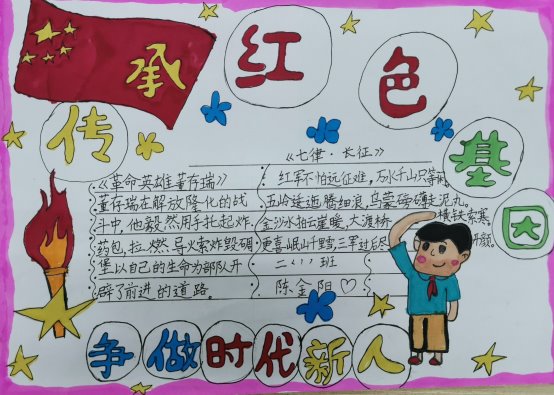 传承红色基因
《革命英雄董存瑞》
董存瑞在解放隆化的战
斗中,他毅然用手托起炸
药包,拉燃导火索炸毁碉
堡以自己的生命为部队开
辟了前进的道路。
《七律·长征》
红军不怕远征难,万水千山只等闲。
五岭逶迤腾细浪,乌蒙磅礴走泥丸。
金沙水拍云崖暖,大渡桥横铁索寒。
更喜岷山千里雪,三军过后尽开颜。
二 班
陈金阳
争做时代新人